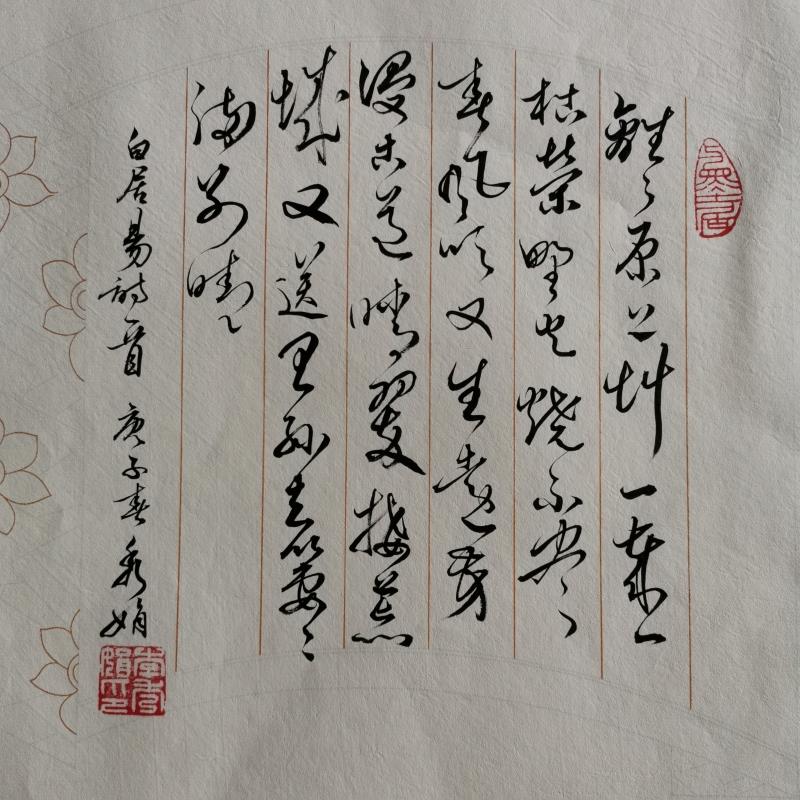 離々原上艸一歲一
枯榮野火燒不盡
春風吹又生遠芳
侵古道晴翠接荒
城又送王孫去萋々
滿別情
白居易詩一首 庚子春 秀娟